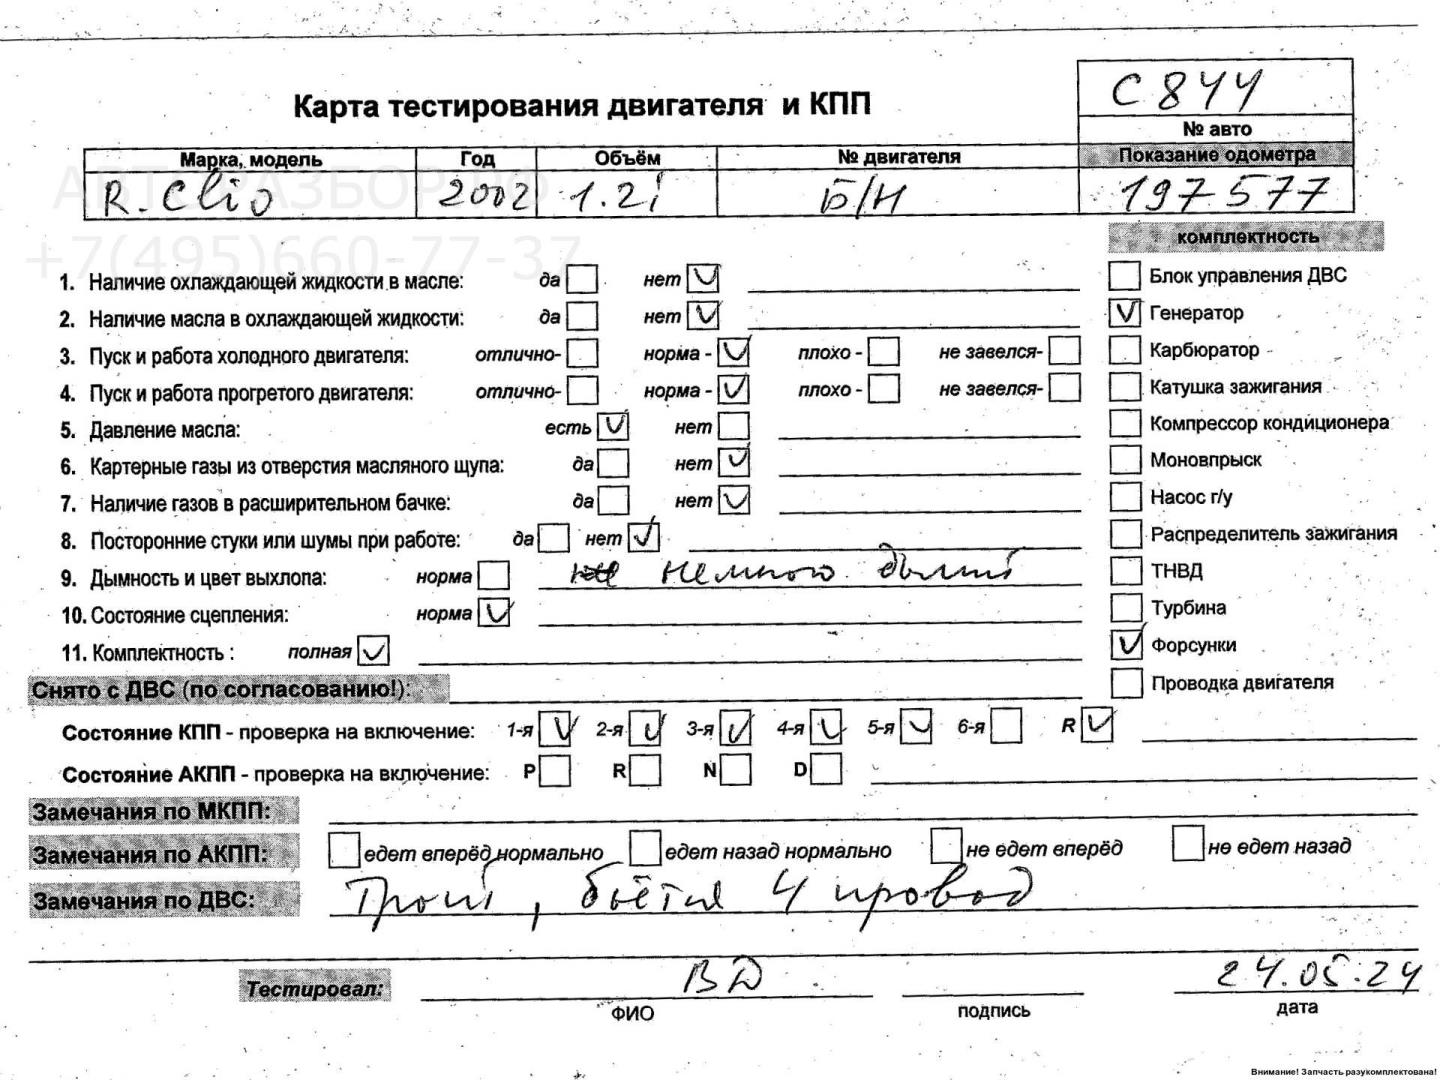 С 844
Карта тестирования двигателя и КПП
№ авто
Марка, модель Год Объём № двигателя Показание одометра
АВТОРАЗБОР.РФ
R. Clio 2002 1.2i Б/Н 197577
+7(495)660-77-37
комплектность
1. Наличие охлаждающей жидкости в масле: да нет V Блок управления ДВС
2. Наличие масла в охлаждающей жидкости: да нет V V Генератор
3. Пуск и работа холодного двигателя: отлично- норма - V плохо - не завелся- Карбюратор
4. Пуск и работа прогретого двигателя: отлично- норма - V плохо - не завелся- Катушка зажигания
5. Давление масла: есть V нет Компрессор кондиционера
6. Картерные газы из отверстия масляного щупа: да нет V Моновпрыск
7. Наличие газов в расширительном бачке: да нет V Насос г/у
8. Посторонние стуки или шумы при работе: да нет V Распределитель зажигания
9. Дымность и цвет выхлопа: норма немного дымит ТНВД
10. Состояние сцепления: норма V Турбина
11. Комплектность : полная V V Форсунки
Снято с ДВС (по согласованию!): Проводка двигателя
Состояние КПП - проверка на включение: 1-я V 2-я V 3-я V 4-я V 5-я V 6-я R V
Состояние АКПП - проверка на включение: P R N D
Замечания по МКПП:
Замечания по АКПП: едет вперёд нормально едет назад нормально не едет вперёд не едет назад
Замечания по ДВС: Троит, бьётся 4 провод
Тестировал: ВД 24.05.24
ФИО подпись дата
Внимание! Запчасть разукомплектована!